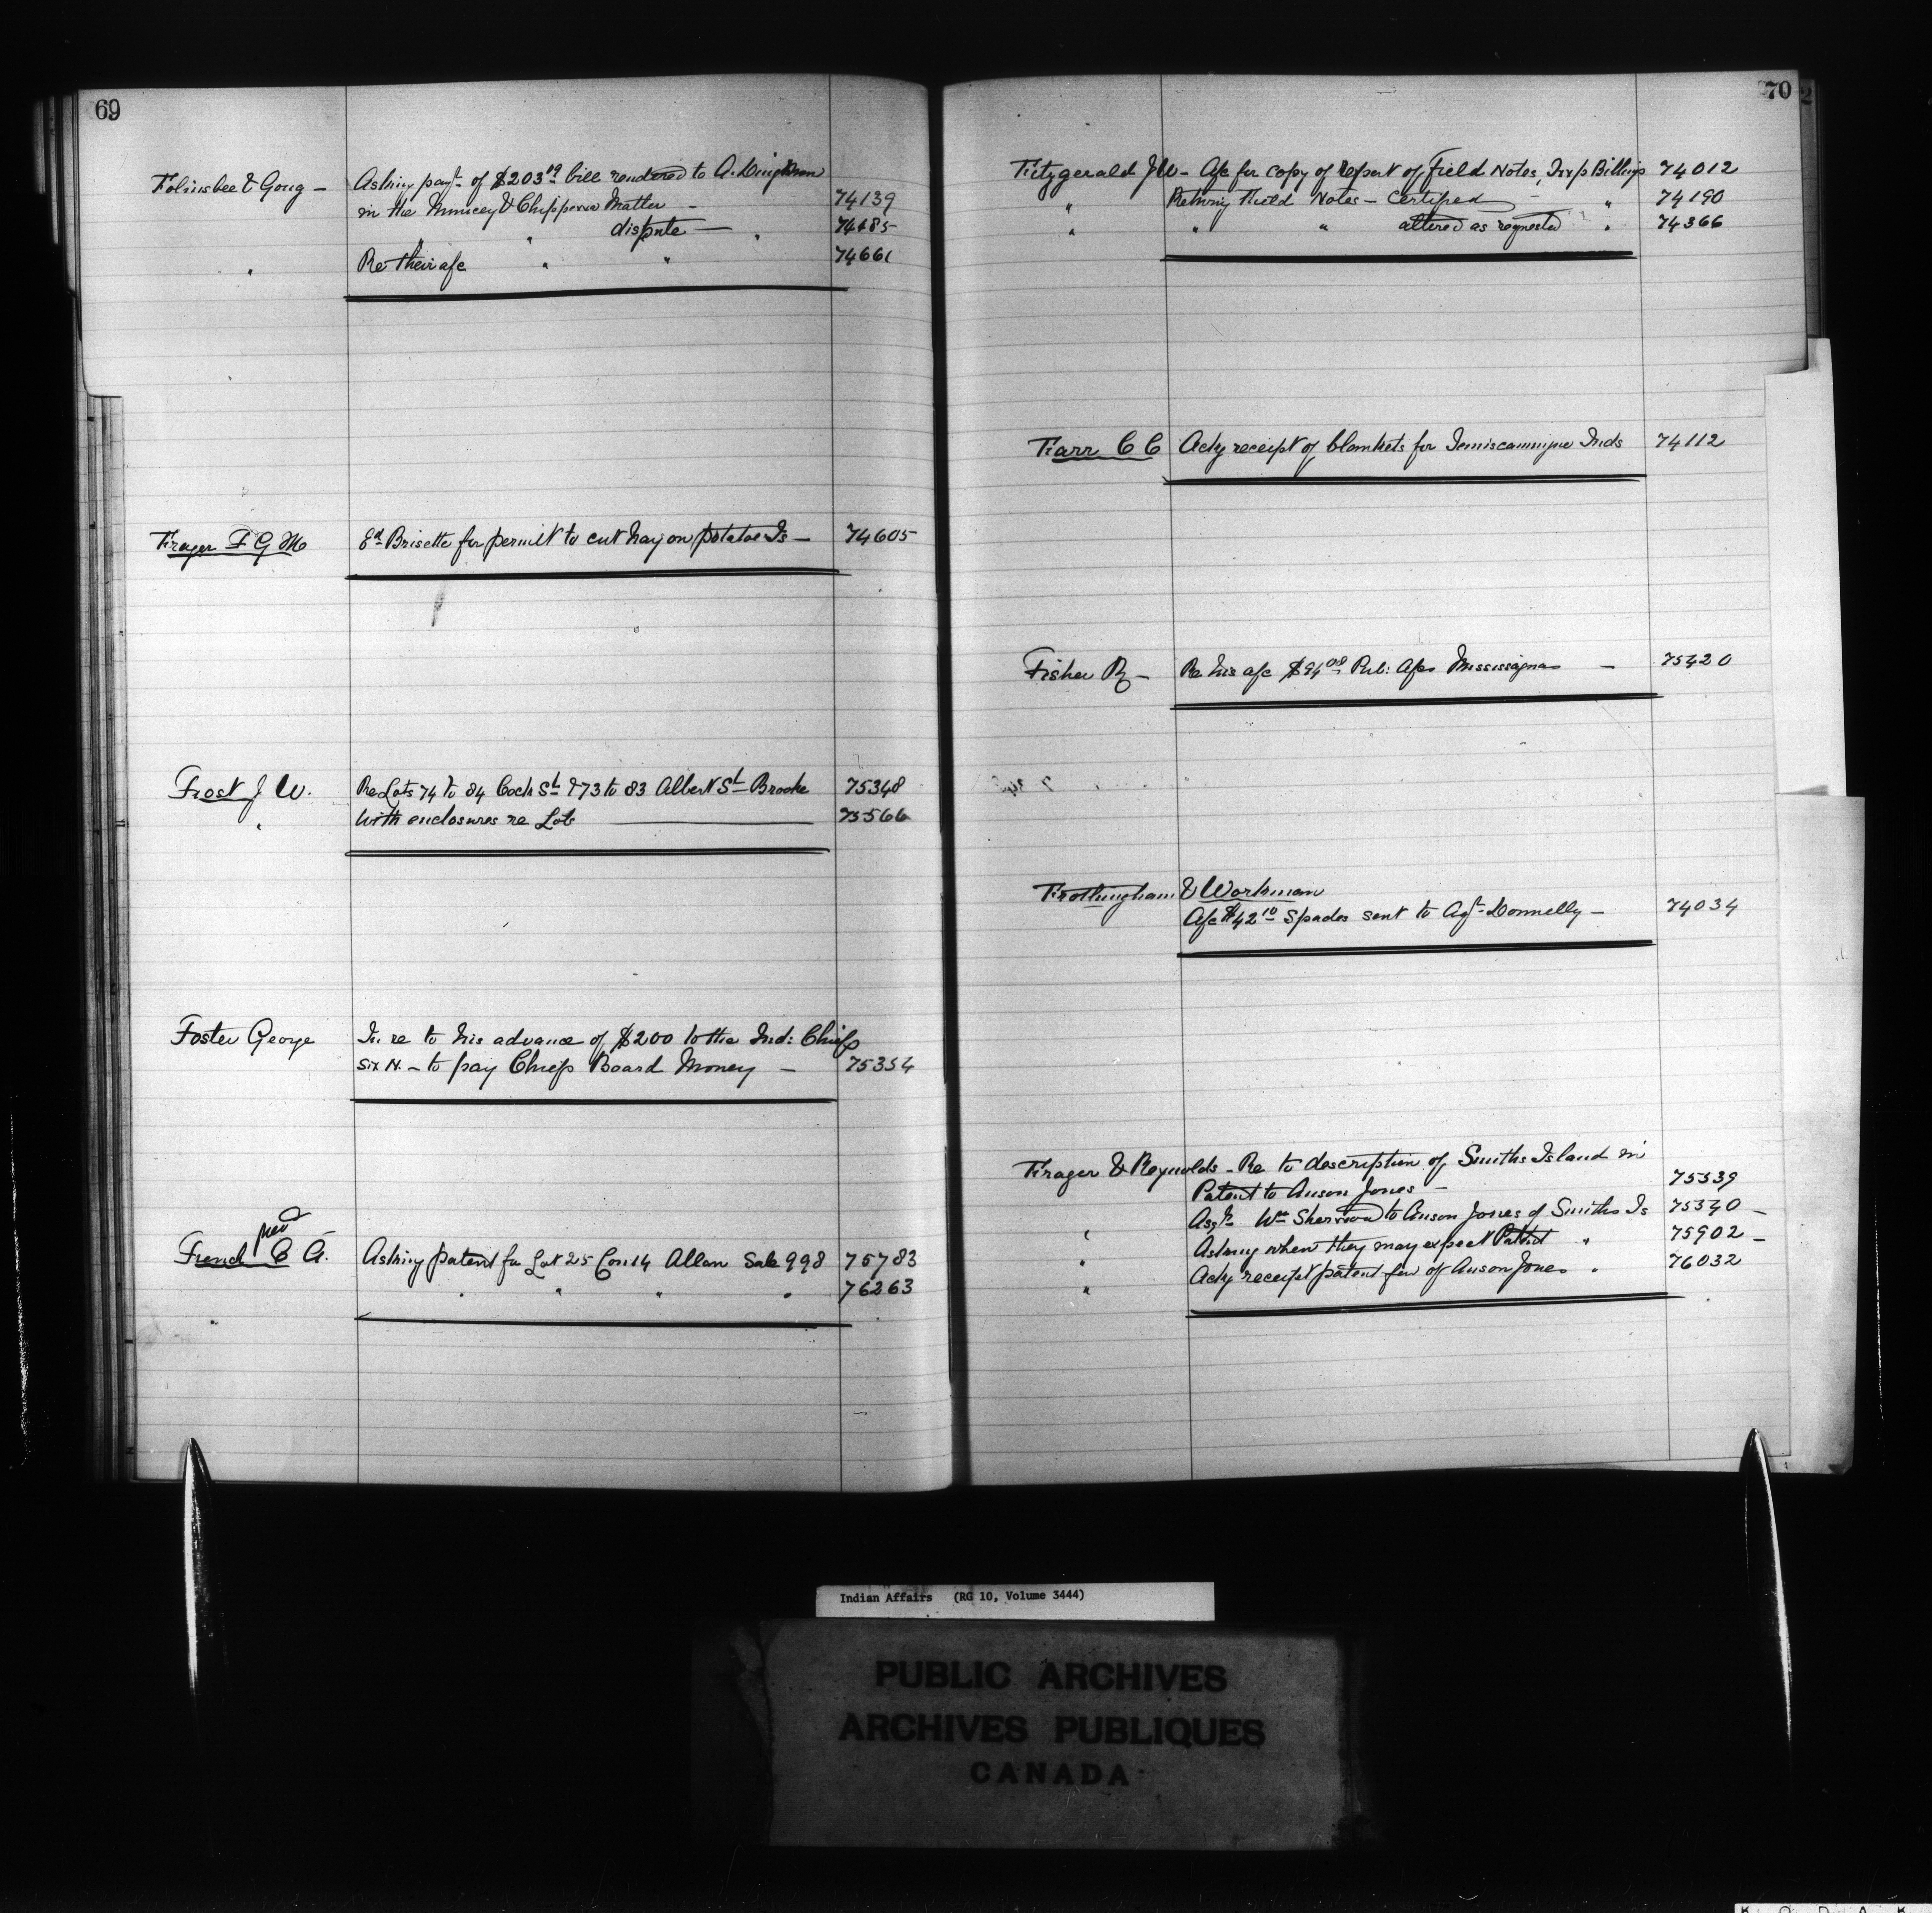 69
Folinsbee & Goug - Asking payt. of $203.09 bill rendered to A. Dingman
in the Muncey & Chippewa Matter - 74139
" dispute - " 74485
" Re their a/c " " 74661
Frazer F G M Ed Brisette for permit to cut hay on potatoe Is - 74605
Frost J W. Re Lots 74 to 84 Coch St & 73 to 83 Albert St Brooke 75348
" With enclosures re Lots 75566
Foster George In re to his advance of $200 to the Ind: Chiefs
Six N. - to pay Chiefs Board Money - 75354
per
French C A. Asking patent for Lot 25 Con 14 Allan Sale 998 75783
" " " " " 76263
70
Fitzgerald J W - A/c for copy of Report of field Notes, Billings 74012
" Retning Field Notes - Certified - " 74190
" " " altered as requested " 74366
Farr C C Ackg receipt of blankets for Temiscamingue Inds 74112
Fisher R - Re his a/c $94.08 Rel: Mississaguas - 75420
Frothingham & Workman
A/c $42.10 Spades sent to Agt. Donnelly - 74034
Frazer & Reynolds - Re to description of Smiths Island in
Patent to Anson Jones - 75539
" Assgt. Wm Sherwood to Anson Jones of Smiths Is 75540 -
" Asking when they may expect Patent " 75902 -
" Ackg receipt patent fav of Anson Jones " 76032
Indian Affairs (RG 10, Volume 3444)
PUBLIC ARCHIVES
ARCHIVES PUBLIQUES
CANADA
K O D A K